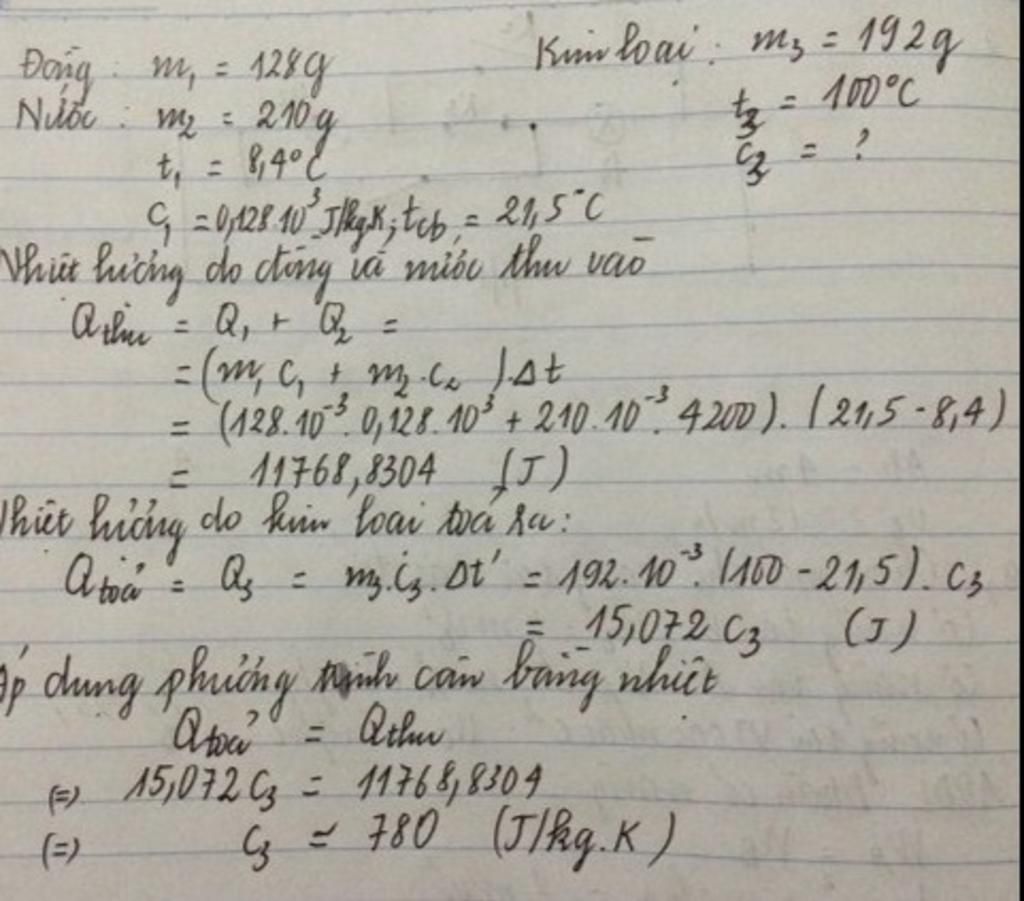 Đồng: m₁ = 128g Kim loại: m₃ = 192g
Nước: m₂ = 210g t₃ = 100°C
t₁ = 8,4°C c₃ = ?
C₁ = 0,128.10³ J/kg.K; tcb = 21,5°C
Nhiệt lượng do đồng và nước thu vào
Qthu = Q₁ + Q₂ =
= (m₁C₁ + m₂.c₂).Δt
= (128.10⁻³.0,128.10³ + 210.10⁻³.4200).(21,5-8,4)
= 11768,8304 (J)
Nhiệt lượng do kim loại toả ra:
Qtoả = Q₃ = m₃.c₃.Δt' = 192.10⁻³.(100-21,5).C₃
= 15,072 C₃ (J)
Áp dụng phương trình cân bằng nhiệt
Qtoả = Qthu
(=) 15,072C₃ = 11768,8304
(=) C₃ = 780 (J/kg.K)